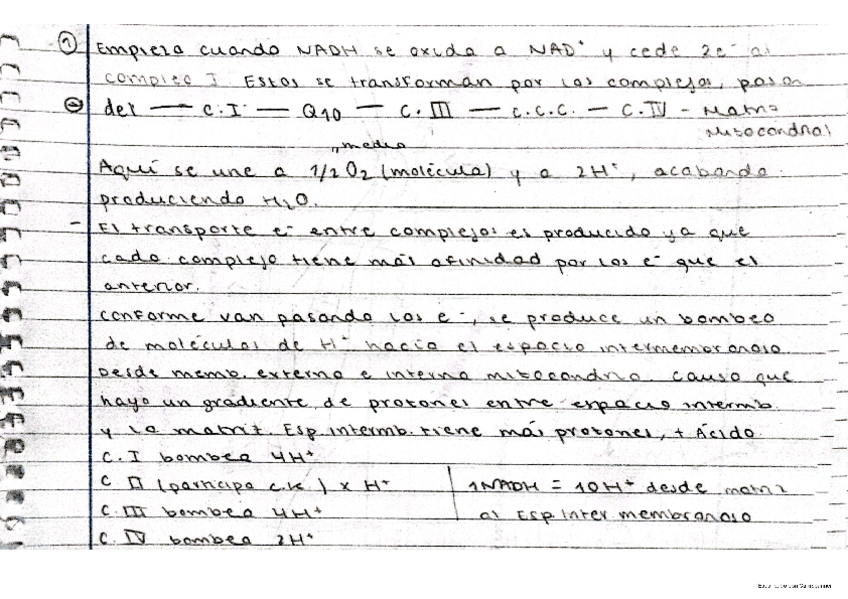 ① Empieza cuando NADH se oxida a NAD⁺ y cede 2e⁻ al
complejo I. Estos se transforman por los complejos, pasan
⊖ del — C.I — Q10 — C.III — C.C.C. — C.IV - Matriz
Mitocondrial
"medio
Aquí se une a 1/2 O₂ (molécula) y a 2H⁺, acabando
produciendo H₂O.
- El transporte e⁻ entre complejos es producido ya que
cada complejo tiene más afinidad por los e⁻ que el
anterior.
Conforme van pasando los e⁻, se produce un bombeo
de moléculas de H⁺ hacia el espacio intermembranoso.
Desde memb. externa e interna mitocondria. Causa que
haya un gradiente de protones entre espacio intermb.
y la matriz. Esp. intermb. tiene más protones, + Ácido.
C. I bombea 4H⁺
C II (participa c.k.) x H⁺
C. III bombea 4H⁺
C. IV bombea 2H⁺
1NADH = 10H⁺ desde matriz
al Esp Inter membranoso